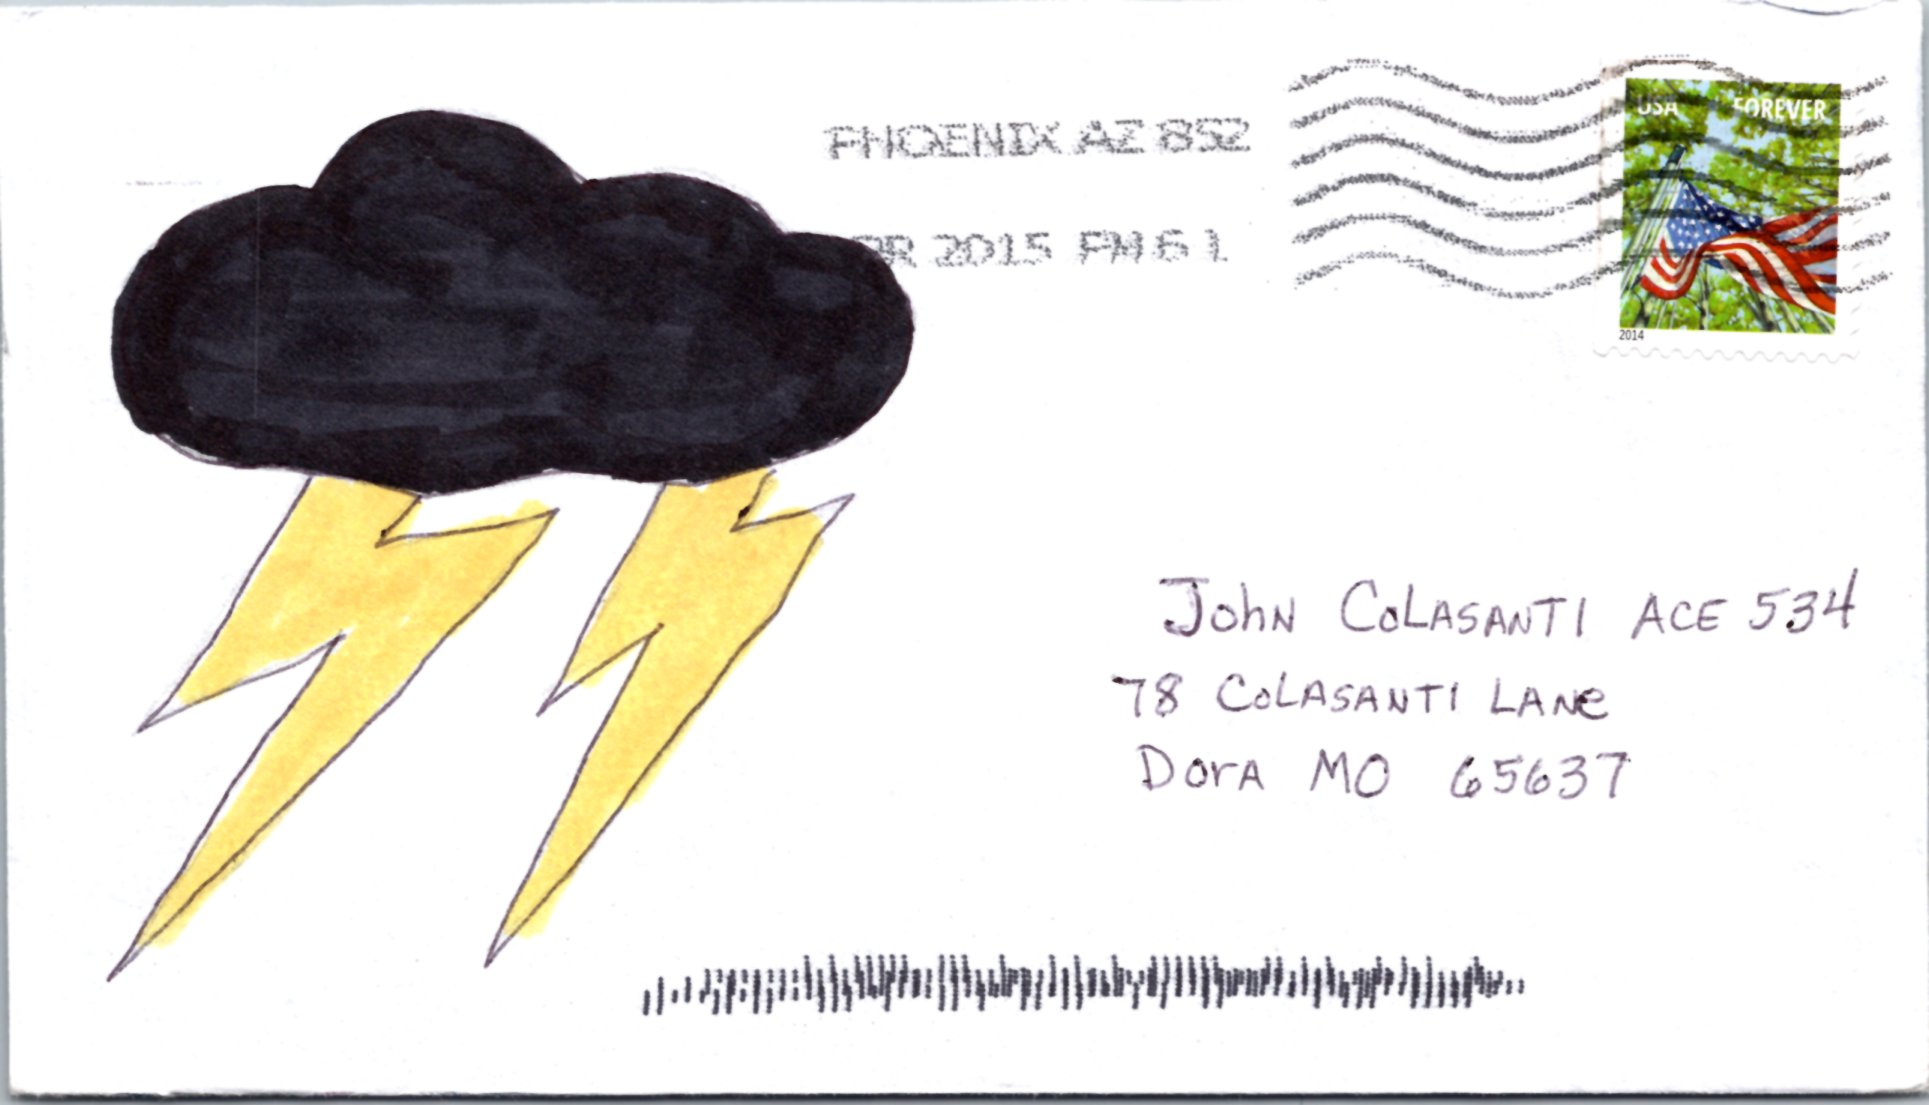 PHOENIX AZ 852
2015 PM 6 1
USA FOREVER
2014
JohN CoLASANTI ACE 534
78 CoLASANTI LANe
DorA MO 65637